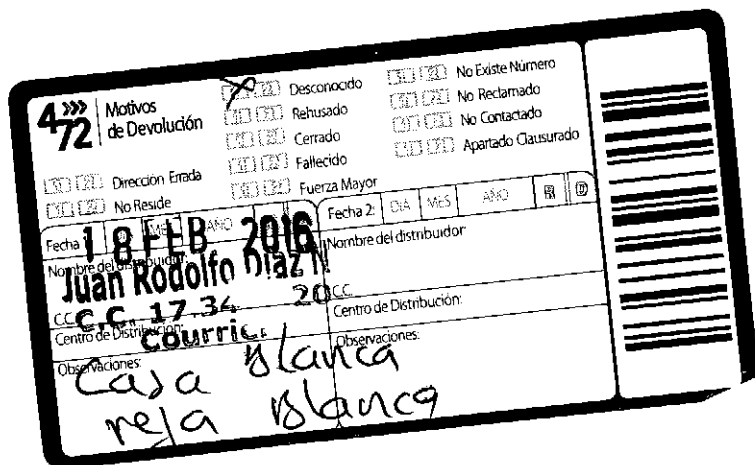 4>>>72
Motivos
de Devolución
Desconocido
Rehusado
Cerrado
Fallecido
Fuerza Mayor
No Existe Número
No Reclamado
No Contactado
Apartado Clausurado
Dirección Errada
No Reside
Fecha
18 FEB 2016
Nombre del distribuidor:
Juan Rodolfo Diaz N
C.C.
C.C. 17.34 20
Centro de Distribución:
Courric.
Observaciones:
Casa Blanca
reja Blanca
Fecha 2: DÍA MES AÑO R D
Nombre del distribuidor
C.C.
Centro de Distribución:
Observaciones: